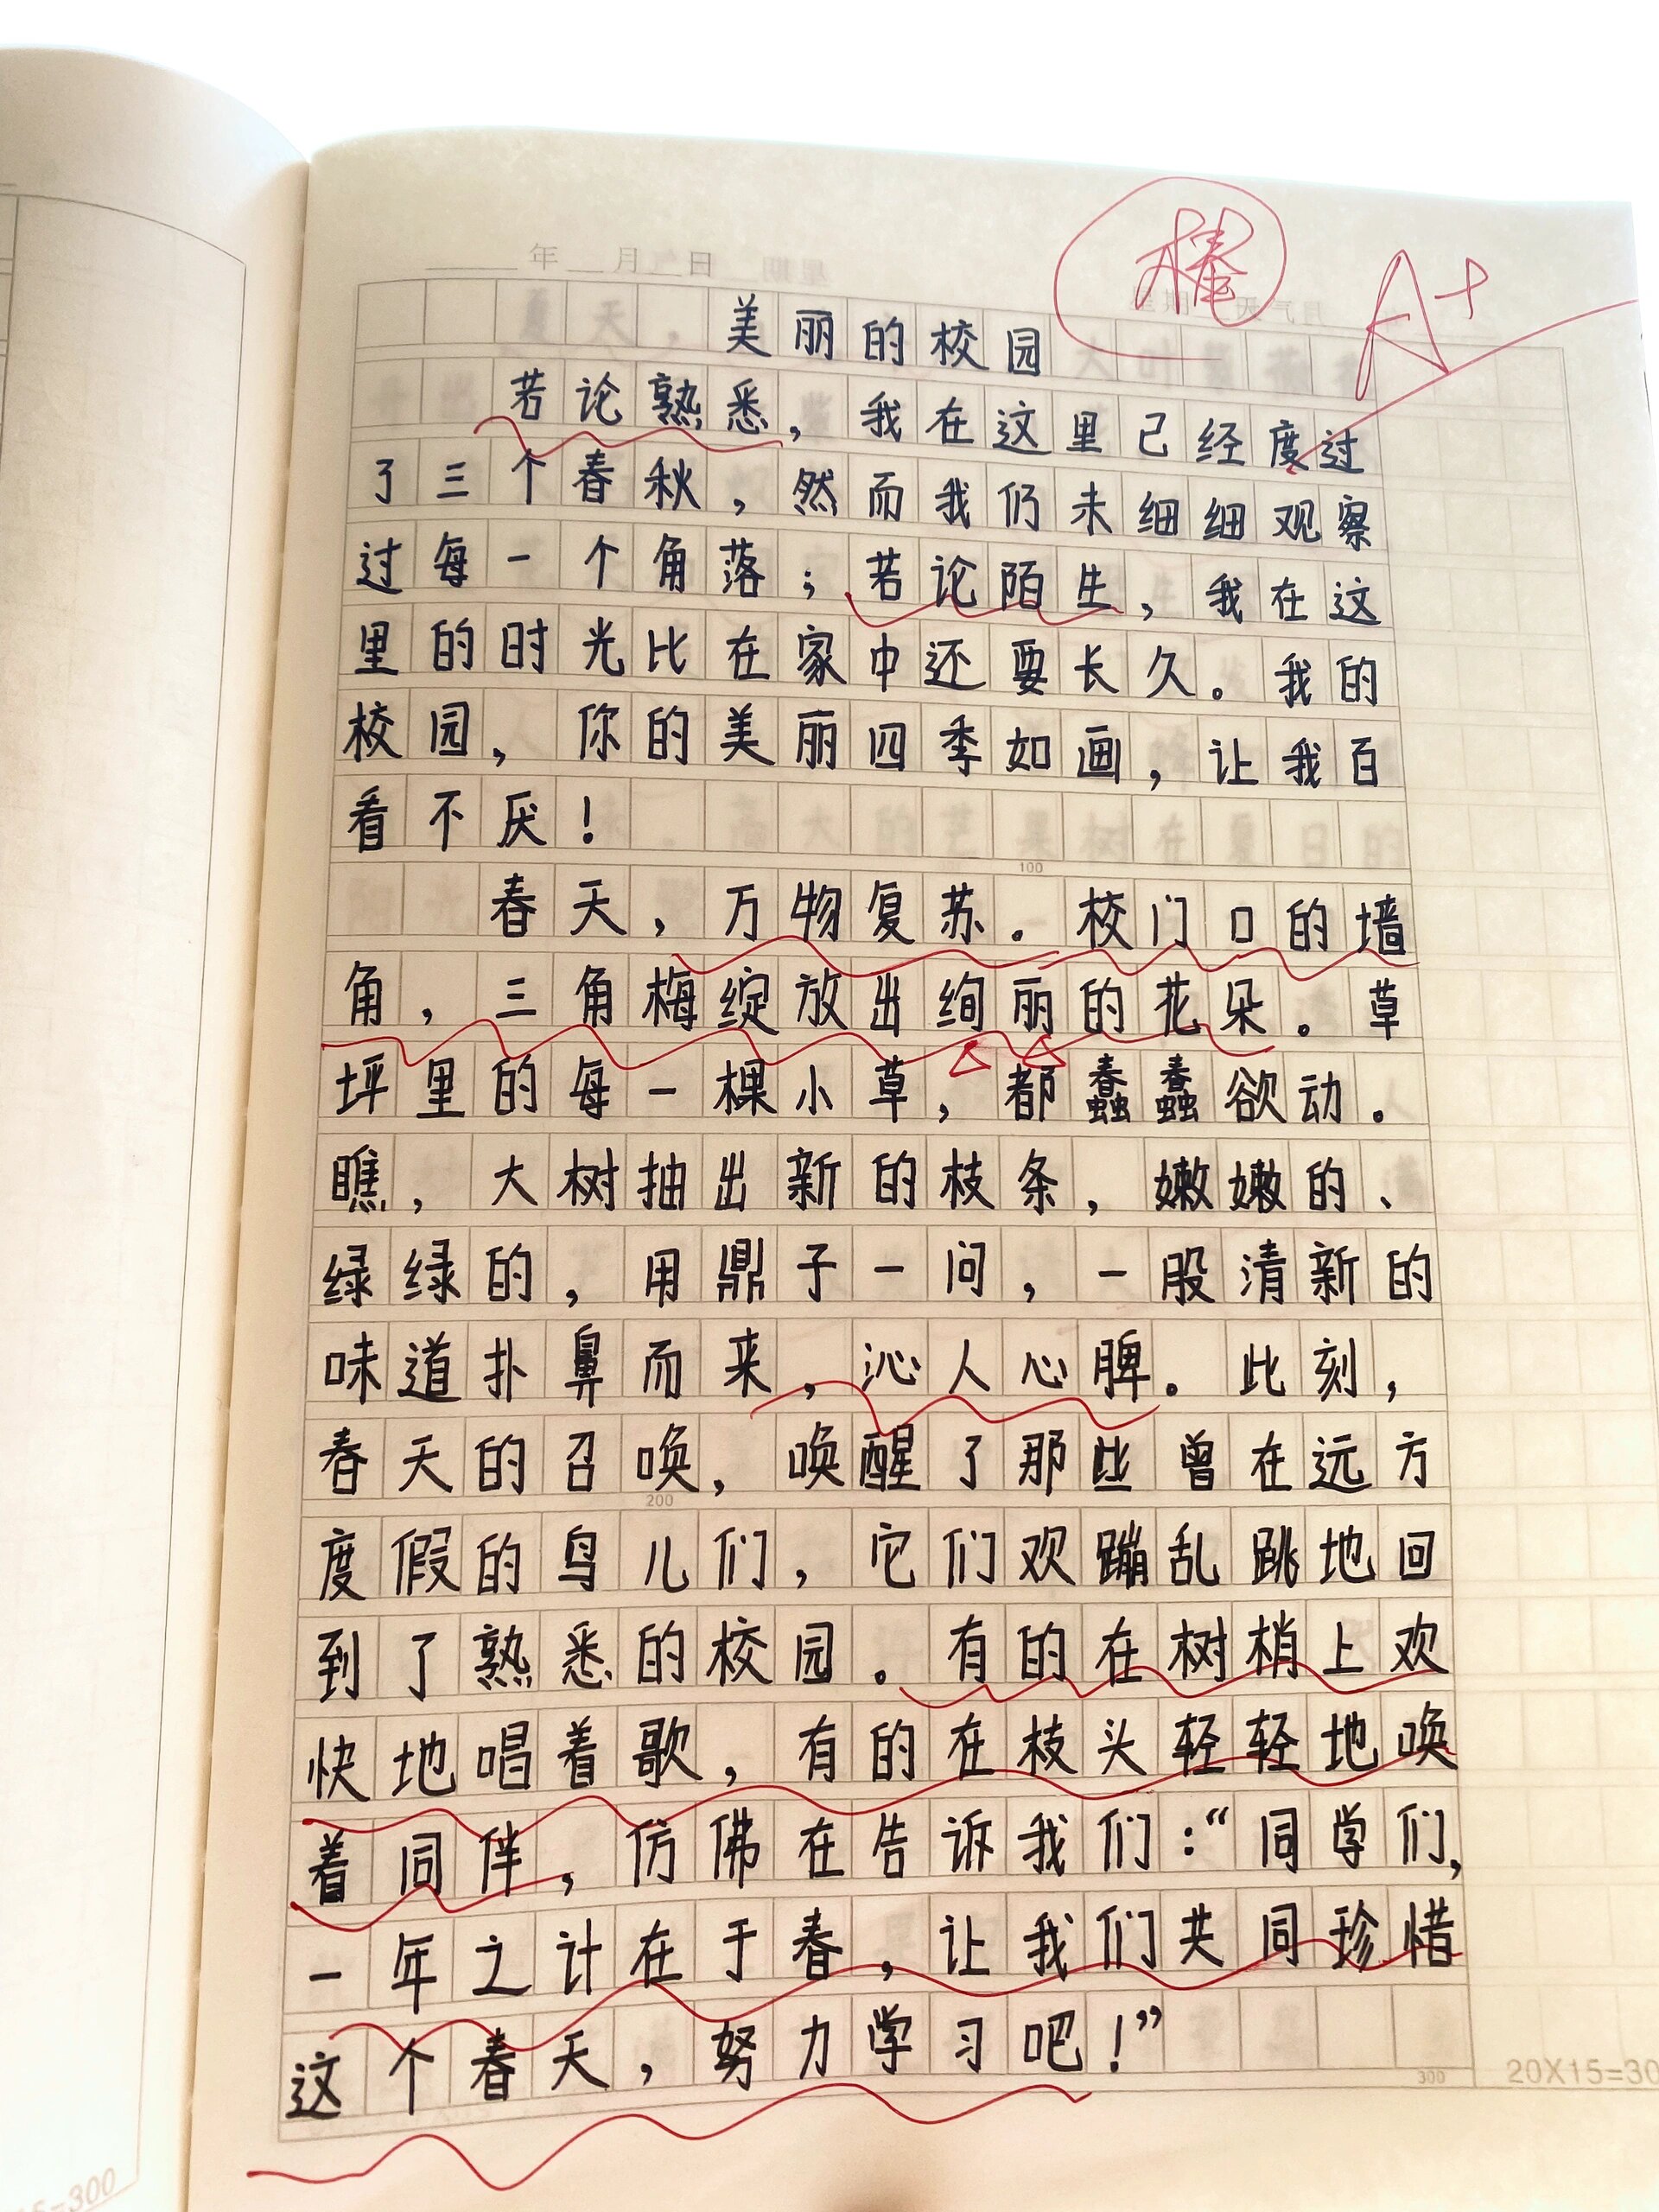 ____年__月__日
棒
A+
美丽的校园
若论熟悉，我在这里已经度过
了三个春秋，然而我仍未细细观察
过每一个角落；若论陌生，我在这
里的时光比在家中还要长久。我的
校园，你的美丽四季如画，让我百
看不厌！
100
春天，万物复苏。校门口的墙
角，三角梅绽放出绚丽的花朵。草
坪里的每一棵小草，都蠢蠢欲动。
瞧，大树抽出新的枝条，嫩嫩的、
绿绿的，用鼎子一问，一股清新的
味道扑鼻而来，沁人心脾。此刻，
春天的召唤，唤醒了那些曾在远方
200
度假的鸟儿们，它们欢蹦乱跳地回
到了熟悉的校园。有的在树梢上欢
快地唱着歌，有的在枝头轻轻地唤
着同伴，仿佛在告诉我们：“同学们，
一年之计在于春，让我们共同珍惜
这个春天，努力学习吧！”
300
20X15=30
15=300